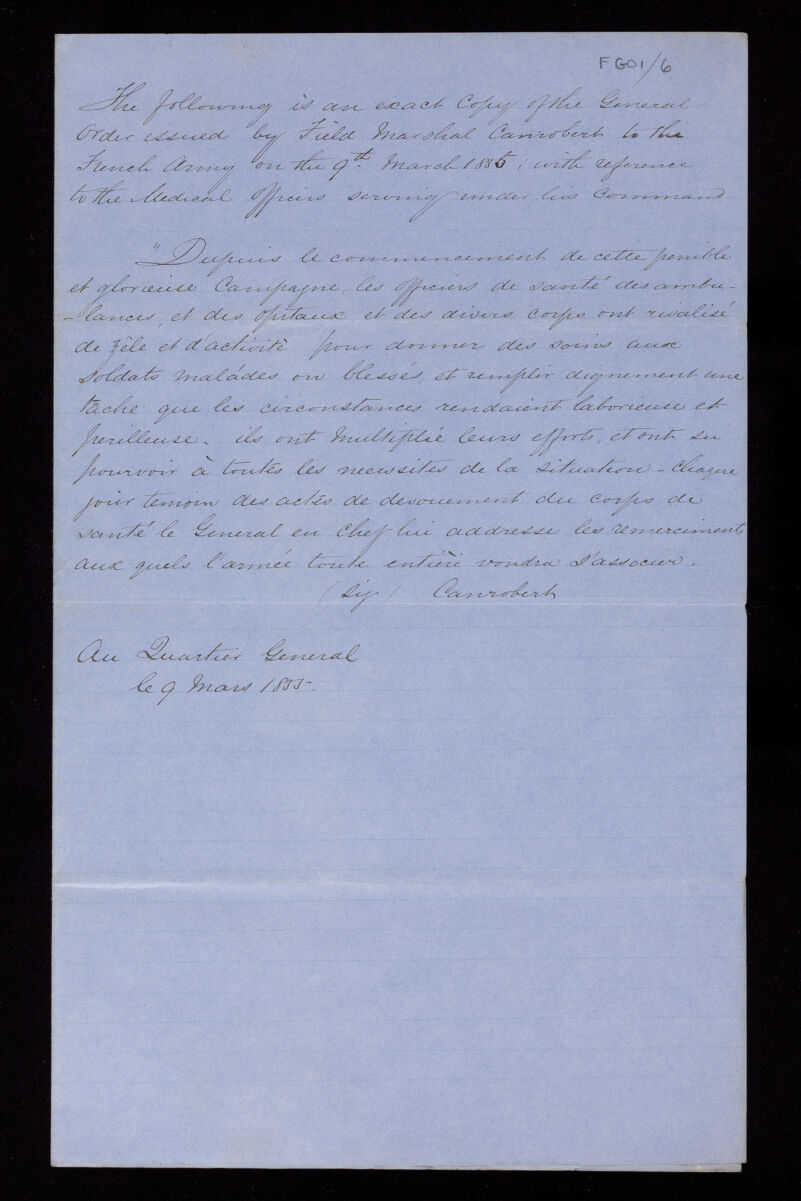 FGO1/6
The following is an exact Copy of the General
Order issued by Field Marshal Canrobert to the
French Army on the 9th March 1855; with reference
to the Medical Officers serving under his Command
"Depuis le commencement de cette penible
et glorieuse Campagne, les officiers de santé des ambu-
-lances, et des opitaux, et des divers corps ont rivalisé
de zêle et d'activitè pour donner des soins aux
soldats maládes ou blessés, et remplir dignement une
tâche que les circonstances rendaient laborieuse et
perilleuse. ils ont multiplié leurs efforts, et ont su
pourvoir à toutes les necessités de la situation - Chaque
jour temoin des actes de devouement du corps de
santé le General en Chef lui addresse les remerciments
aux quels l'armée toute entière voudra s'associer.
(Sig) Canrobert
Au Quartier General
le 9 Mars 1855.